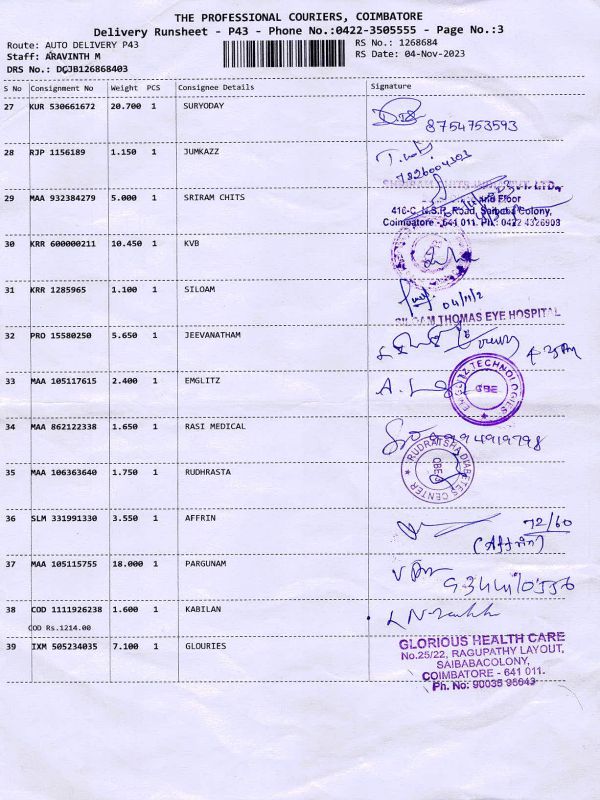 THE PROFESSIONAL COURIERS, COIMBATORE
Delivery Runsheet - P43 - Phone No.:0422-3505555 - Page No.:3
Route: AUTO DELIVERY P43
RS No.: 1268684
Staff: ARAVINTH M
RS Date: 04-Nov-2023
DRS No.: DCJB126868403
S No Consignment No Weight PCS Consignee Details Signature
27 KUR 530661672 20.700 1 SURYODAY
8754753593
28 RJP 1156189 1.150 1 JUMKAZZ
7826004101
29 MAA 932384279 5.000 1 SRIRAM CHITS
416-C, N.S.R. Road, Saibaba Colony,
Coimbatore - 641 011. PH: 0422 4326903
30 KRR 600000211 10.450 1 KVB
31 KRR 1285965 1.100 1 SILOAM
04/11/2
SILOAM THOMAS EYE HOSPITAL
32 PRO 15580250 5.650 1 JEEVANATHAM
33 MAA 105117615 2.400 1 EMGLITZ
EMGLITZ TECHNOLOGIES
CBE
34 MAA 862122338 1.650 1 RASI MEDICAL
35 MAA 106363640 1.750 1 RUDHRASTA
DIABETES CENTER
CBE
36 SLM 331991330 3.550 1 AFFRIN
72/60
(Affrin)
37 MAA 105115755 18.000 1 PARGUNAM
38 COD 1111926238 1.600 1 KABILAN
COD Rs.1214.00
39 IXM 505234035 7.100 1 GLOURIES
GLORIOUS HEALTH CARE
No.25/22, RAGUPATHY LAYOUT,
SAIBABACOLONY,
COIMBATORE - 641 011.
Ph. No: 90035 95643